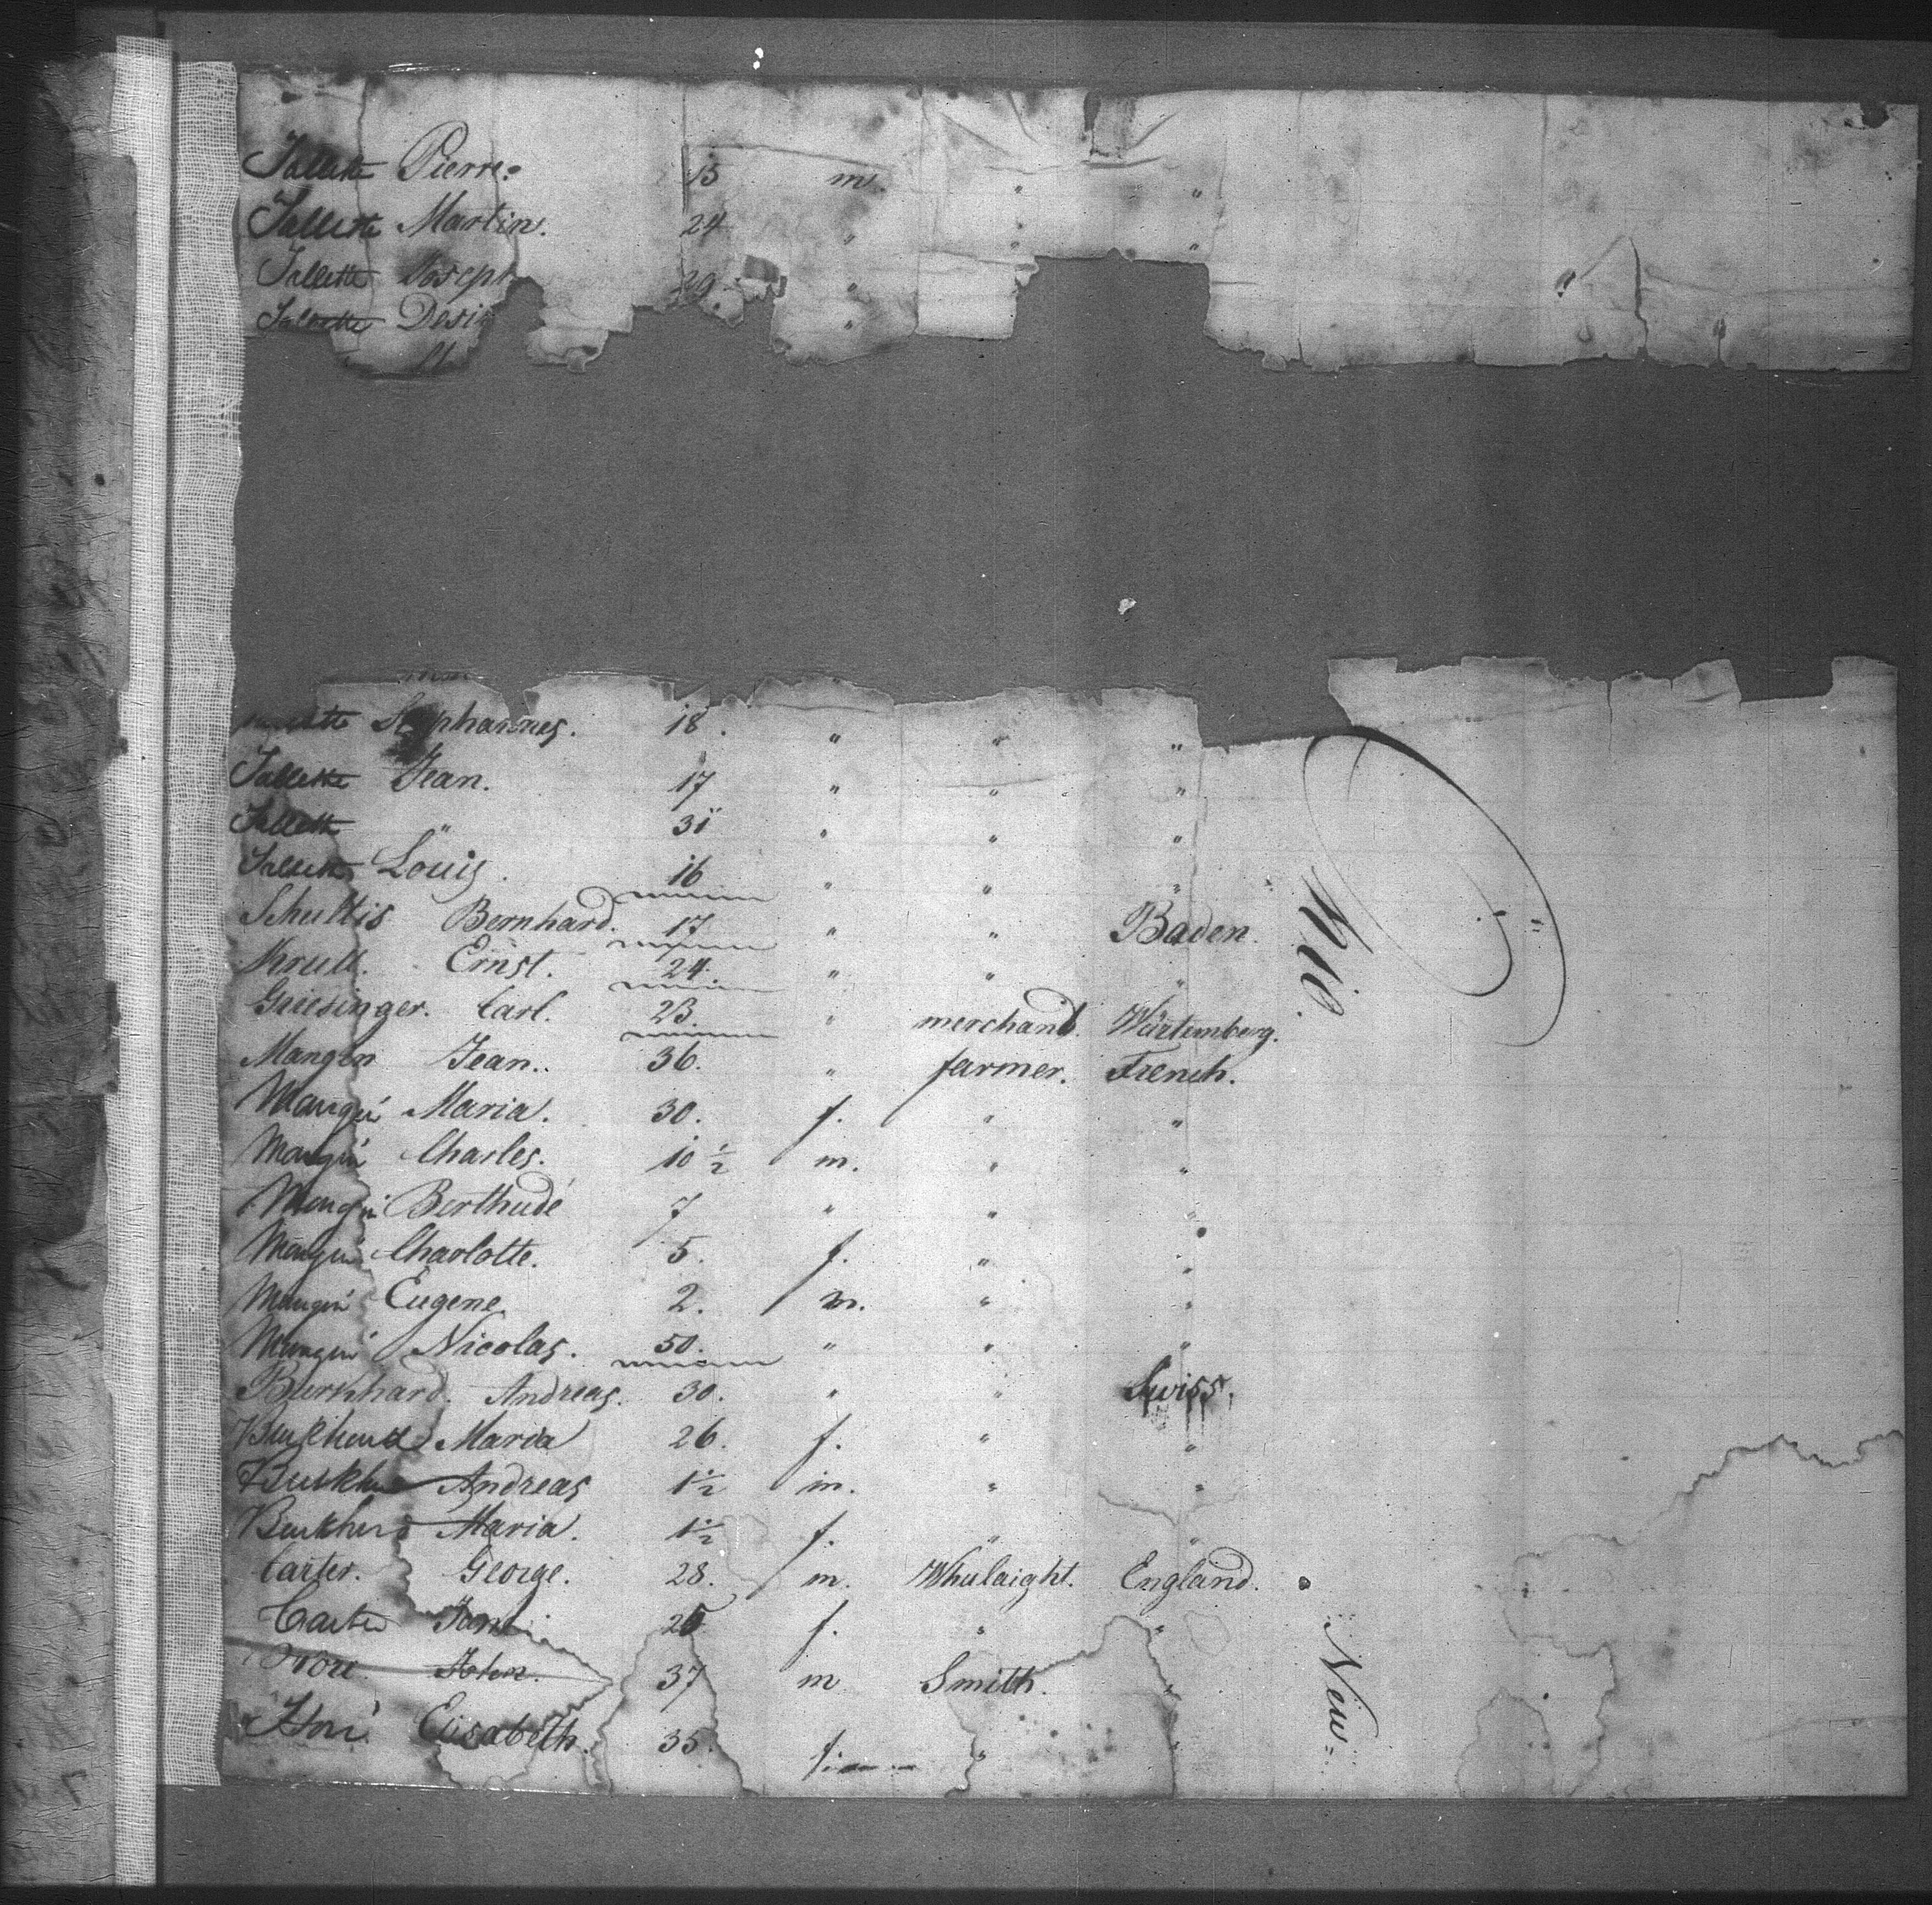 Jallette Pierre. 15 m. " "
Jallette Martin. 24 " " "
Jallette Joseph 29. "
Jallette Desi "
Stephannes. 18. " " "
Jallette Jean. 17 " " "
Jallette " 31 " " "
Jallette Louis. 16 " " "
Schultis Bernhard. 17 " " Baden.
Krull. Ernst. 24. " " "
Griesinger. Carl. 23. " merchand. Würtemberg.
Mangin Jean.. 36. " farmer. French.
Mangin Maria. 30. f. " "
Mangin Charles. 10 1/2 m. " "
Mangin Berthude 7 " " "
Mangin Charlotte. 5. f. " "
Mangin Eugene. 2. m. " "
Mangin Nicolas. 50. " " "
Burkhard. Andreas. 30. " " Swiss.
Burkhard Maria 26. f. " "
Burkhard Andreas 1 1/2 m. " "
Burkherd Maria. 1 1/2 f. " "
Carter. George. 28. m. Whulaight. England.
Carter Jane 25 f. " "
John. 37 m Smith. "
Elisabeth. 35. f. " "
New